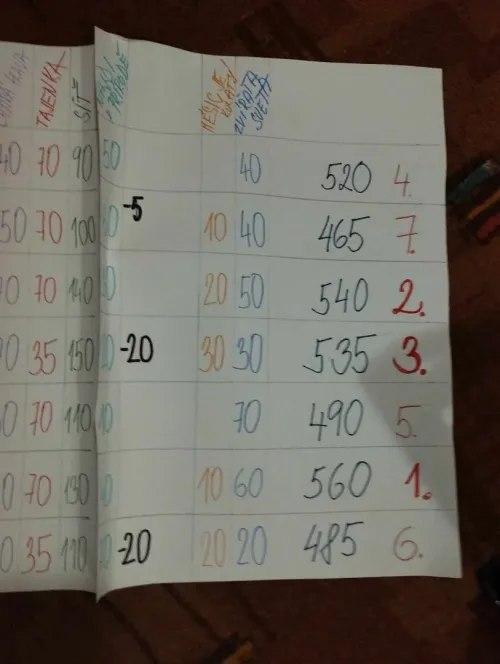 TAJENKA SÍŤ MĚSÍC JE ZVÍŘATA SVĚTA
40 70 90 50 40 520 4.
50 70 100 -5 10 40 465 7.
70 140 20 50 540 2.
35 150 -20 30 30 535 3.
70 110 70 490 5.
70 130 10 60 560 1.
35 110 -20 20 20 485 6.